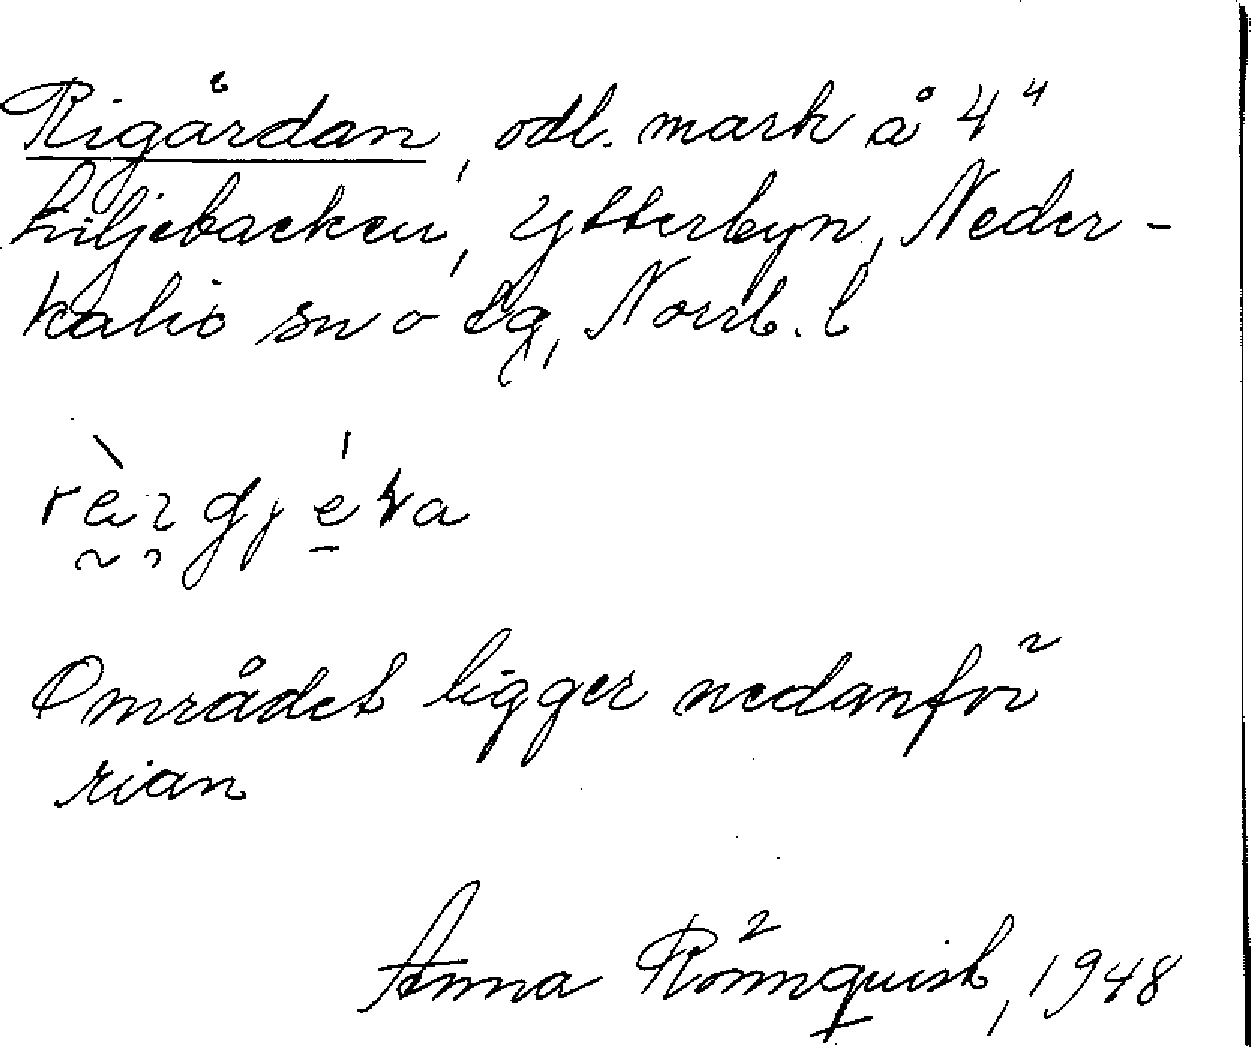 Rigårdan, odl. mark å 4⁴
Liljebacken, Ytterbyn, Neder-
kalix sn o
Norrb. l
Området ligger nedanför
rian
Anna Rönnquist, 1948